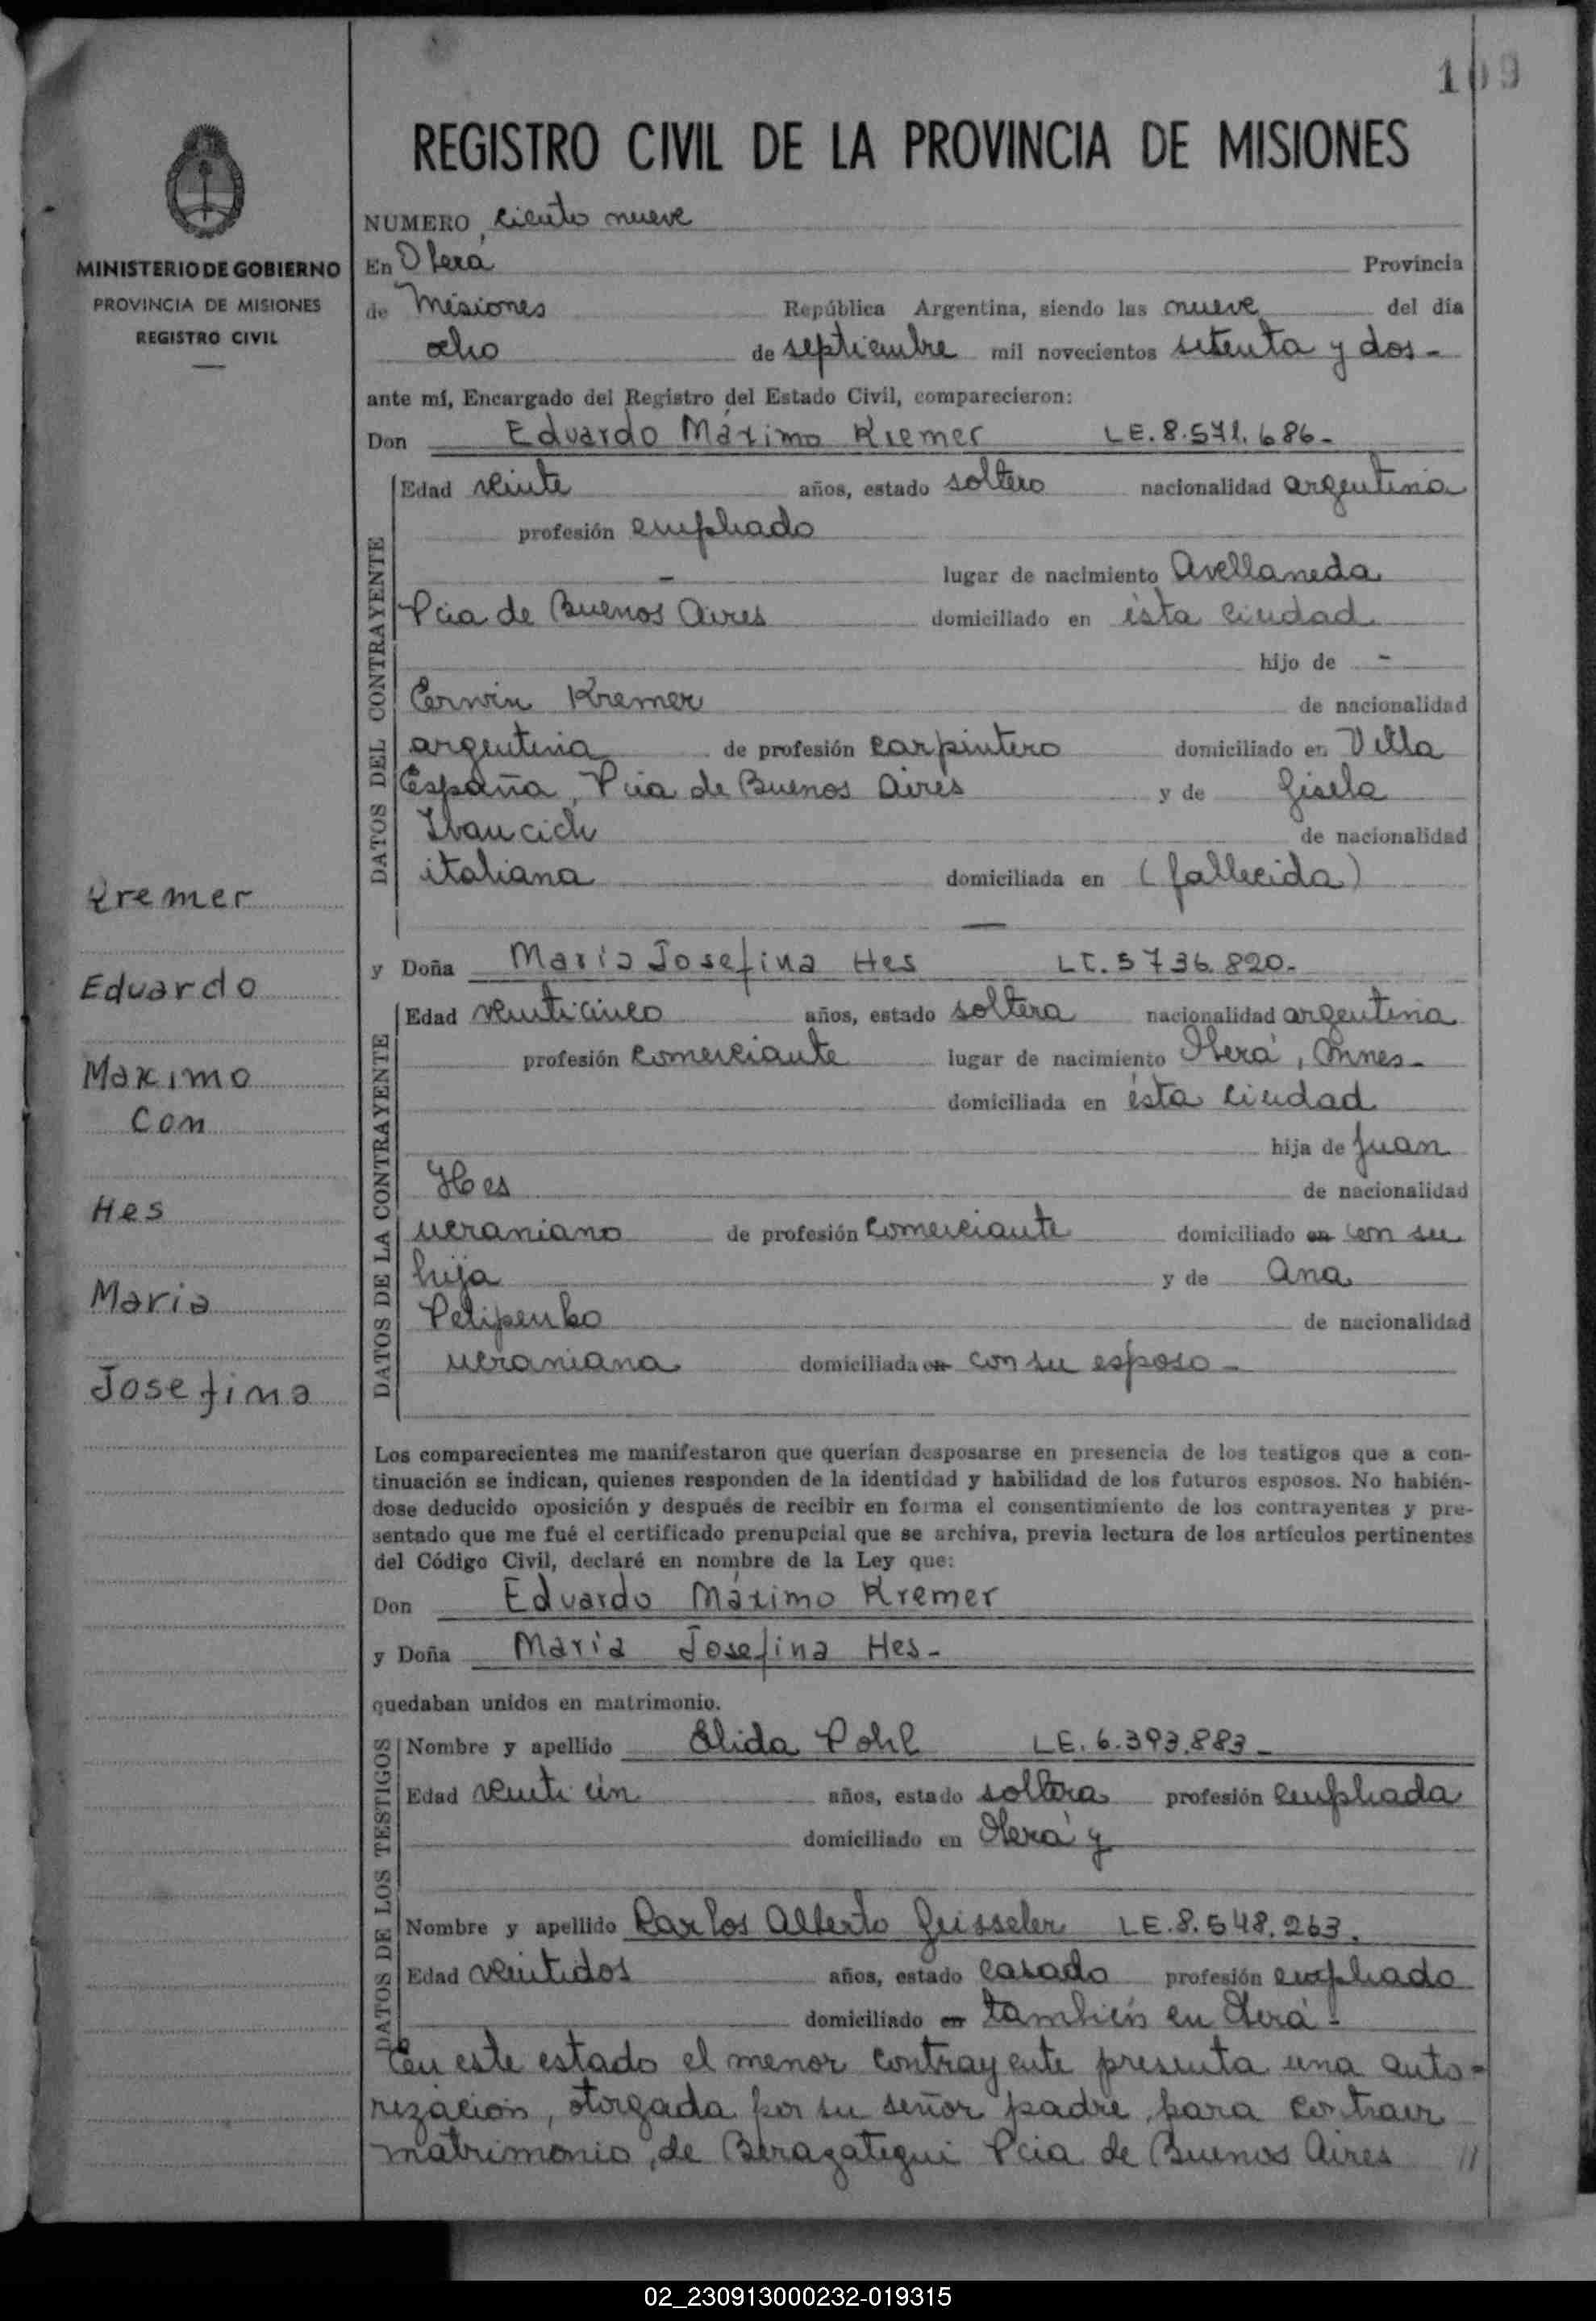 109
REGISTRO CIVIL DE LA PROVINCIA DE MISIONES
MINISTERIO DE GOBIERNO
PROVINCIA DE MISIONES
REGISTRO CIVIL
NUMERO ciento nueve
En Oberá Provincia
de Misiones República Argentina, siendo las nueve del día
ocho de septiembre mil novecientos setenta y dos-
ante mí, Encargado del Registro del Estado Civil, comparecieron:
Don Eduardo Máximo Kremer LE. 8.571.686-
DATOS DEL CONTRAYENTE
Edad veinte años, estado soltero nacionalidad argentina
profesión empleado
- lugar de nacimiento Avellaneda
Pcia de Buenos Aires domiciliado en ésta ciudad
hijo de -
Erwin Kremer de nacionalidad
argentina de profesión carpintero domiciliado en Villa
España, Pcia de Buenos Aires y de Gisela
Ivancich de nacionalidad
italiana domiciliada en (fallecida)
—
y Doña María Josefina Hes LC. 5736.820.-
DATOS DE LA CONTRAYENTE
Edad veinticinco años, estado soltera nacionalidad argentina
profesión comerciante lugar de nacimiento Oberá, Mnes-
domiciliada en ésta ciudad
hija de Juan
Hes de nacionalidad
ucraniano de profesión comerciante domiciliado en con su
hija y de Ana
Pelipenko de nacionalidad
ucraniana domiciliada en con su esposo-
Kremer
Eduardo
Maximo
Con
Hes
Maria
Josefina
Los comparecientes me manifestaron que querían desposarse en presencia de los testigos que a con-
tinuación se indican, quienes responden de la identidad y habilidad de los futuros esposos. No habién-
dose deducido oposición y después de recibir en forma el consentimiento de los contrayentes y pre-
sentado que me fué el certificado prenupcial que se archiva, previa lectura de los artículos pertinentes
del Código Civil, declaré en nombre de la Ley que:
Don Eduardo Máximo Kremer
y Doña María Josefina Hes-
quedaban unidos en matrimonio.
DATOS DE LOS TESTIGOS
Nombre y apellido Elida Pohl LE. 6.393.883-
Edad veinti ún años, estado soltera profesión empleada
domiciliado en Oberá y
Nombre y apellido Carlos Alberto Geisseler LE. 8.548.263.
Edad veintidos años, estado casado profesión empleado
domiciliado en también en Oberá-
En este estado el menor contrayente presenta una auto-
rización, otorgada por su señor padre, para contraer
matrimonio, de Berazategui Pcia de Buenos Aires //
02_230913000232-019315